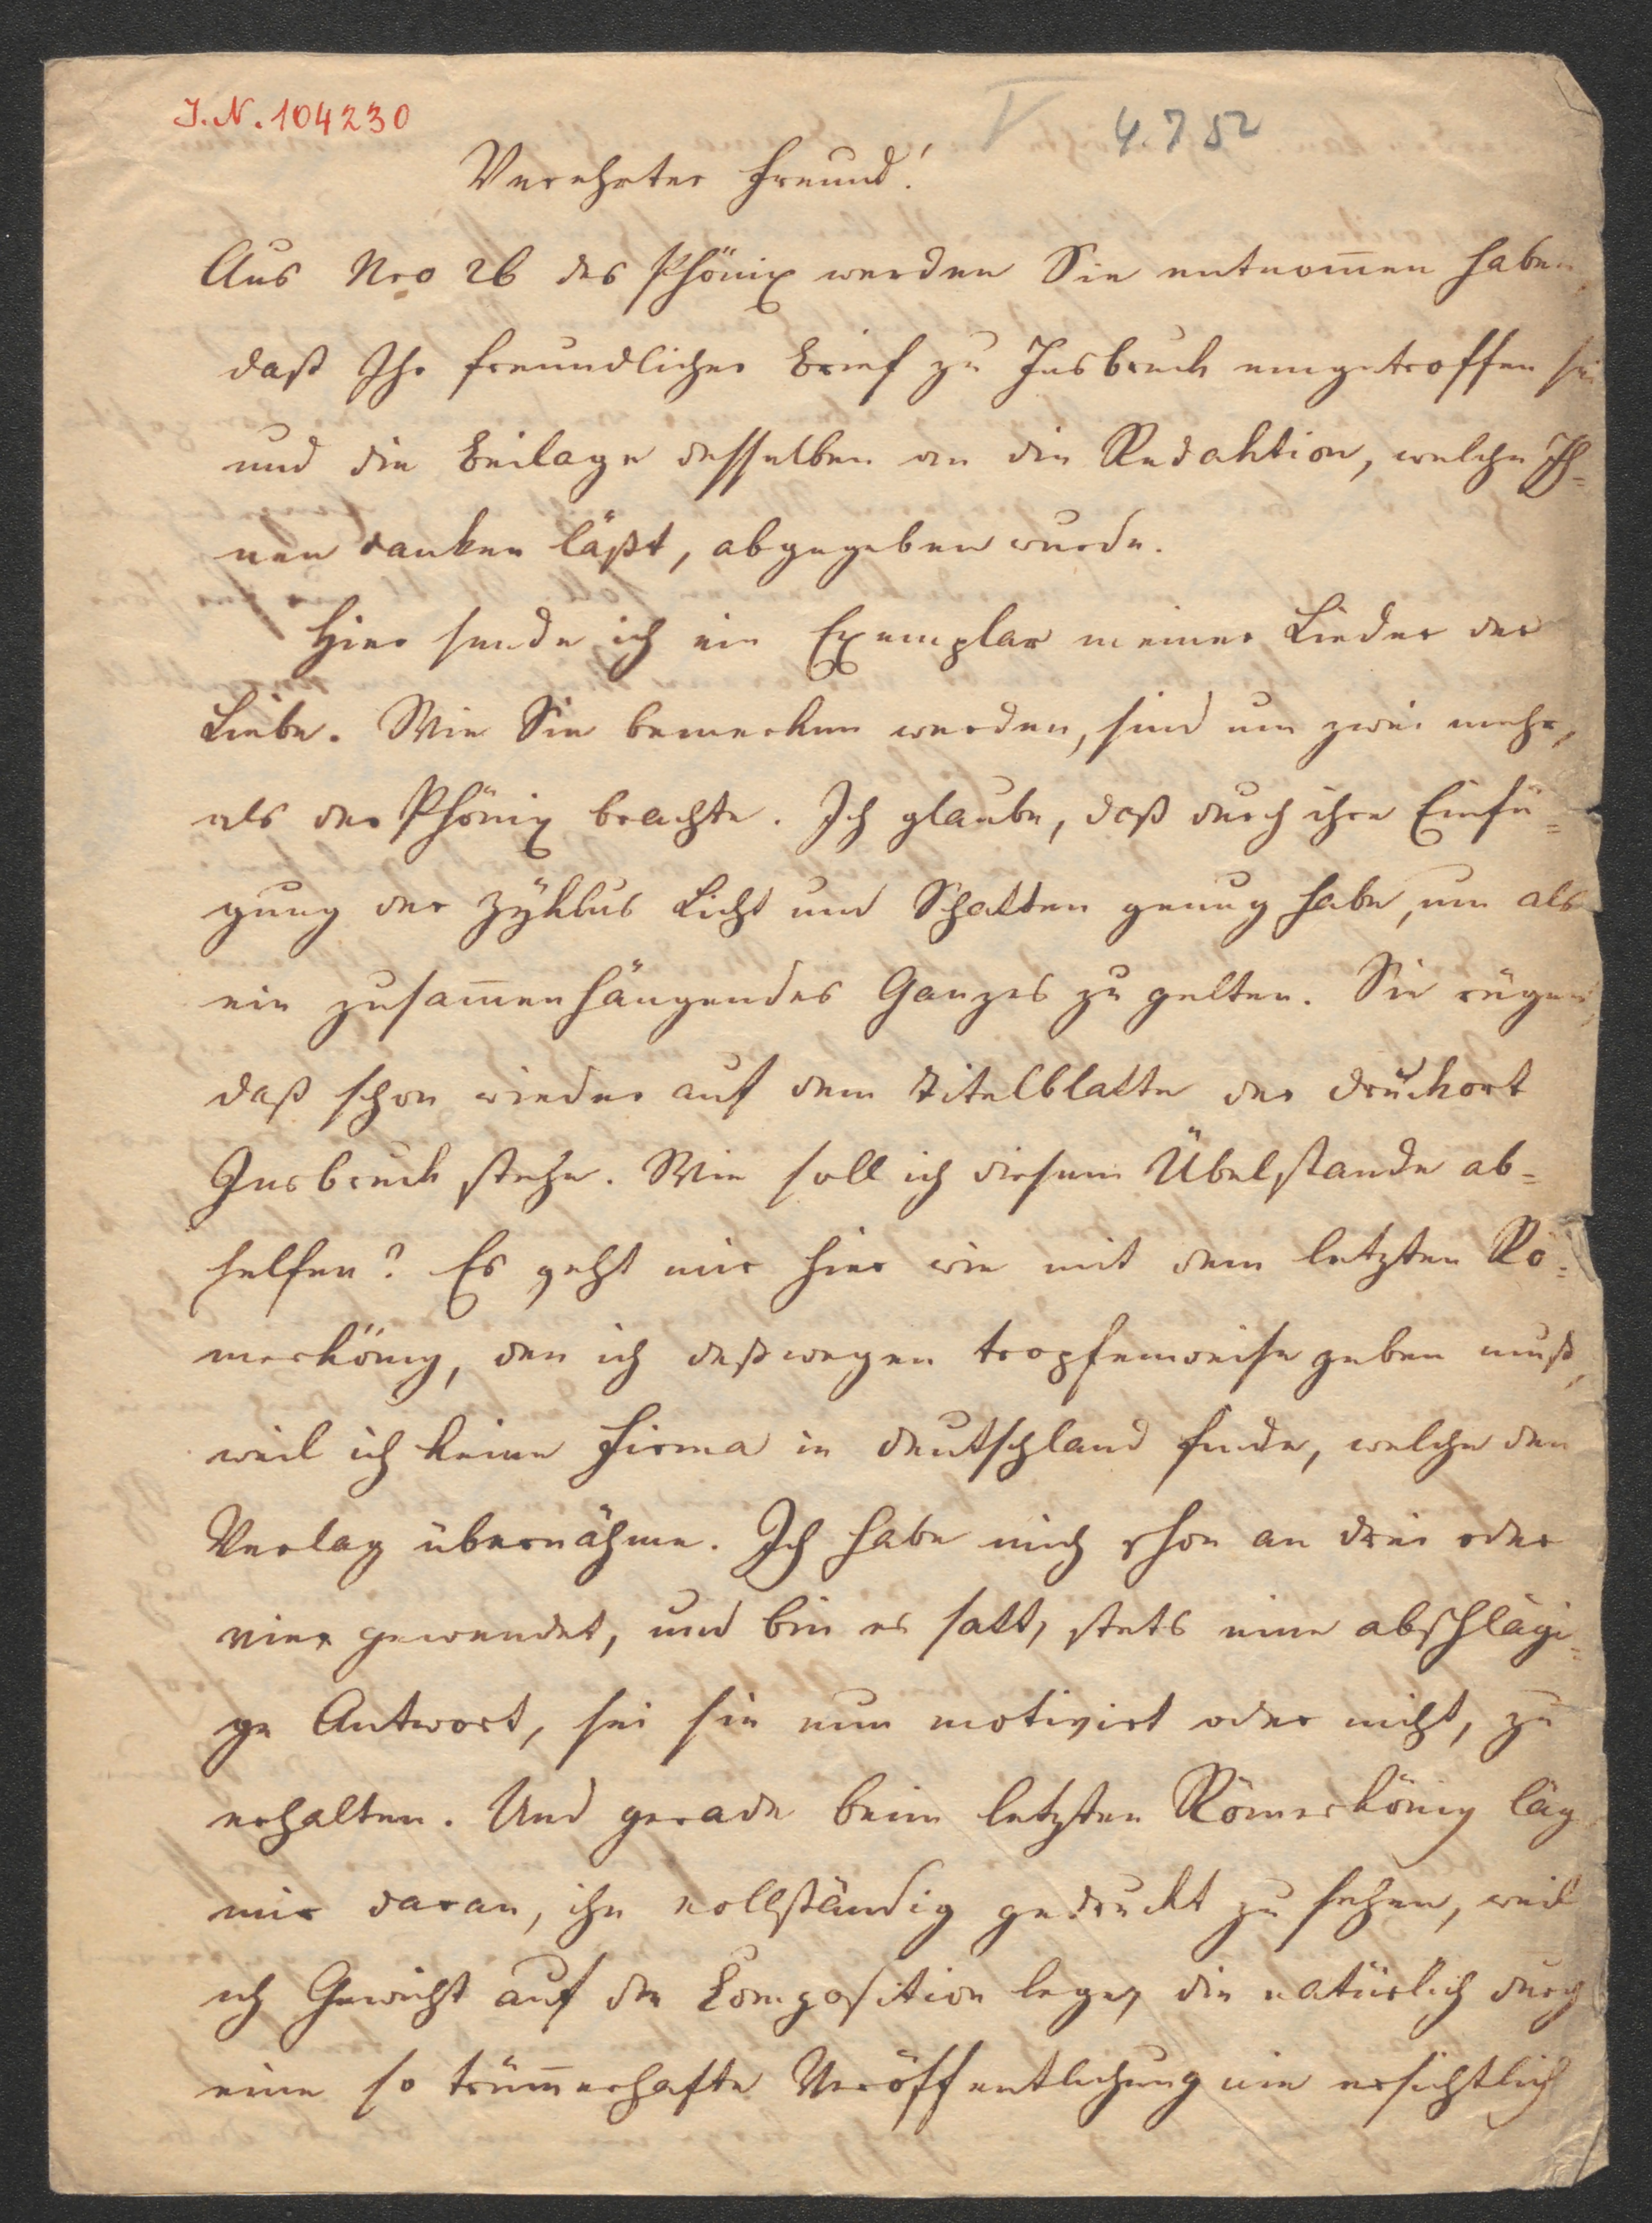 J.N. 104230
V 4.7 52
Verehrter Freund!
Aus Nro 26 des Phönix werden Sie entnom̅en haben
daß Ihr freundlicher Brief zu Insbruck eingetroffen sei
und die Beilage desselben an die Redaktion, welche Ih=
nen danken läßt, abgegeben wurde.
Hier sende ich ein Exemplar meiner Lieder der
Liebe. Wie Sie bemerken werden, sind um zwei mehr,
als der Phönix brachte. Ich glaube, daß durch ihre Einfü=
gung der Zyklus Licht und Schatten genug habe, um als
ein zusam̅enhängendes Ganzes zu gelten. Sie rügen,
daß schon wieder auf dem Titelblatte der Druckort
Insbruck stehe. Wie soll ich diesem Übelstande ab=
helfen? Es geht mir hier wie mit dem letzten Rö=
merkönig, den ich deßwegen tropfenweise geben muß,
weil ich keine Firma in Deutschland finde, welche den
Verlag übernähme. Ich habe mich schon an drei oder
vier gewendet, und bin es satt, stets eine abschlägi=
ge Antwort, sei sie nun motivirt oder nicht, zu
erhalten. Und gerade beim letzten Römerkönig läg
mir daran, ihn vollständig gedruckt zu sehen, weil
ich Gewicht auf die Composition lege, die natürlich durch
eine so trüm̅erhafte Veröffentlichung nie ersichtlich